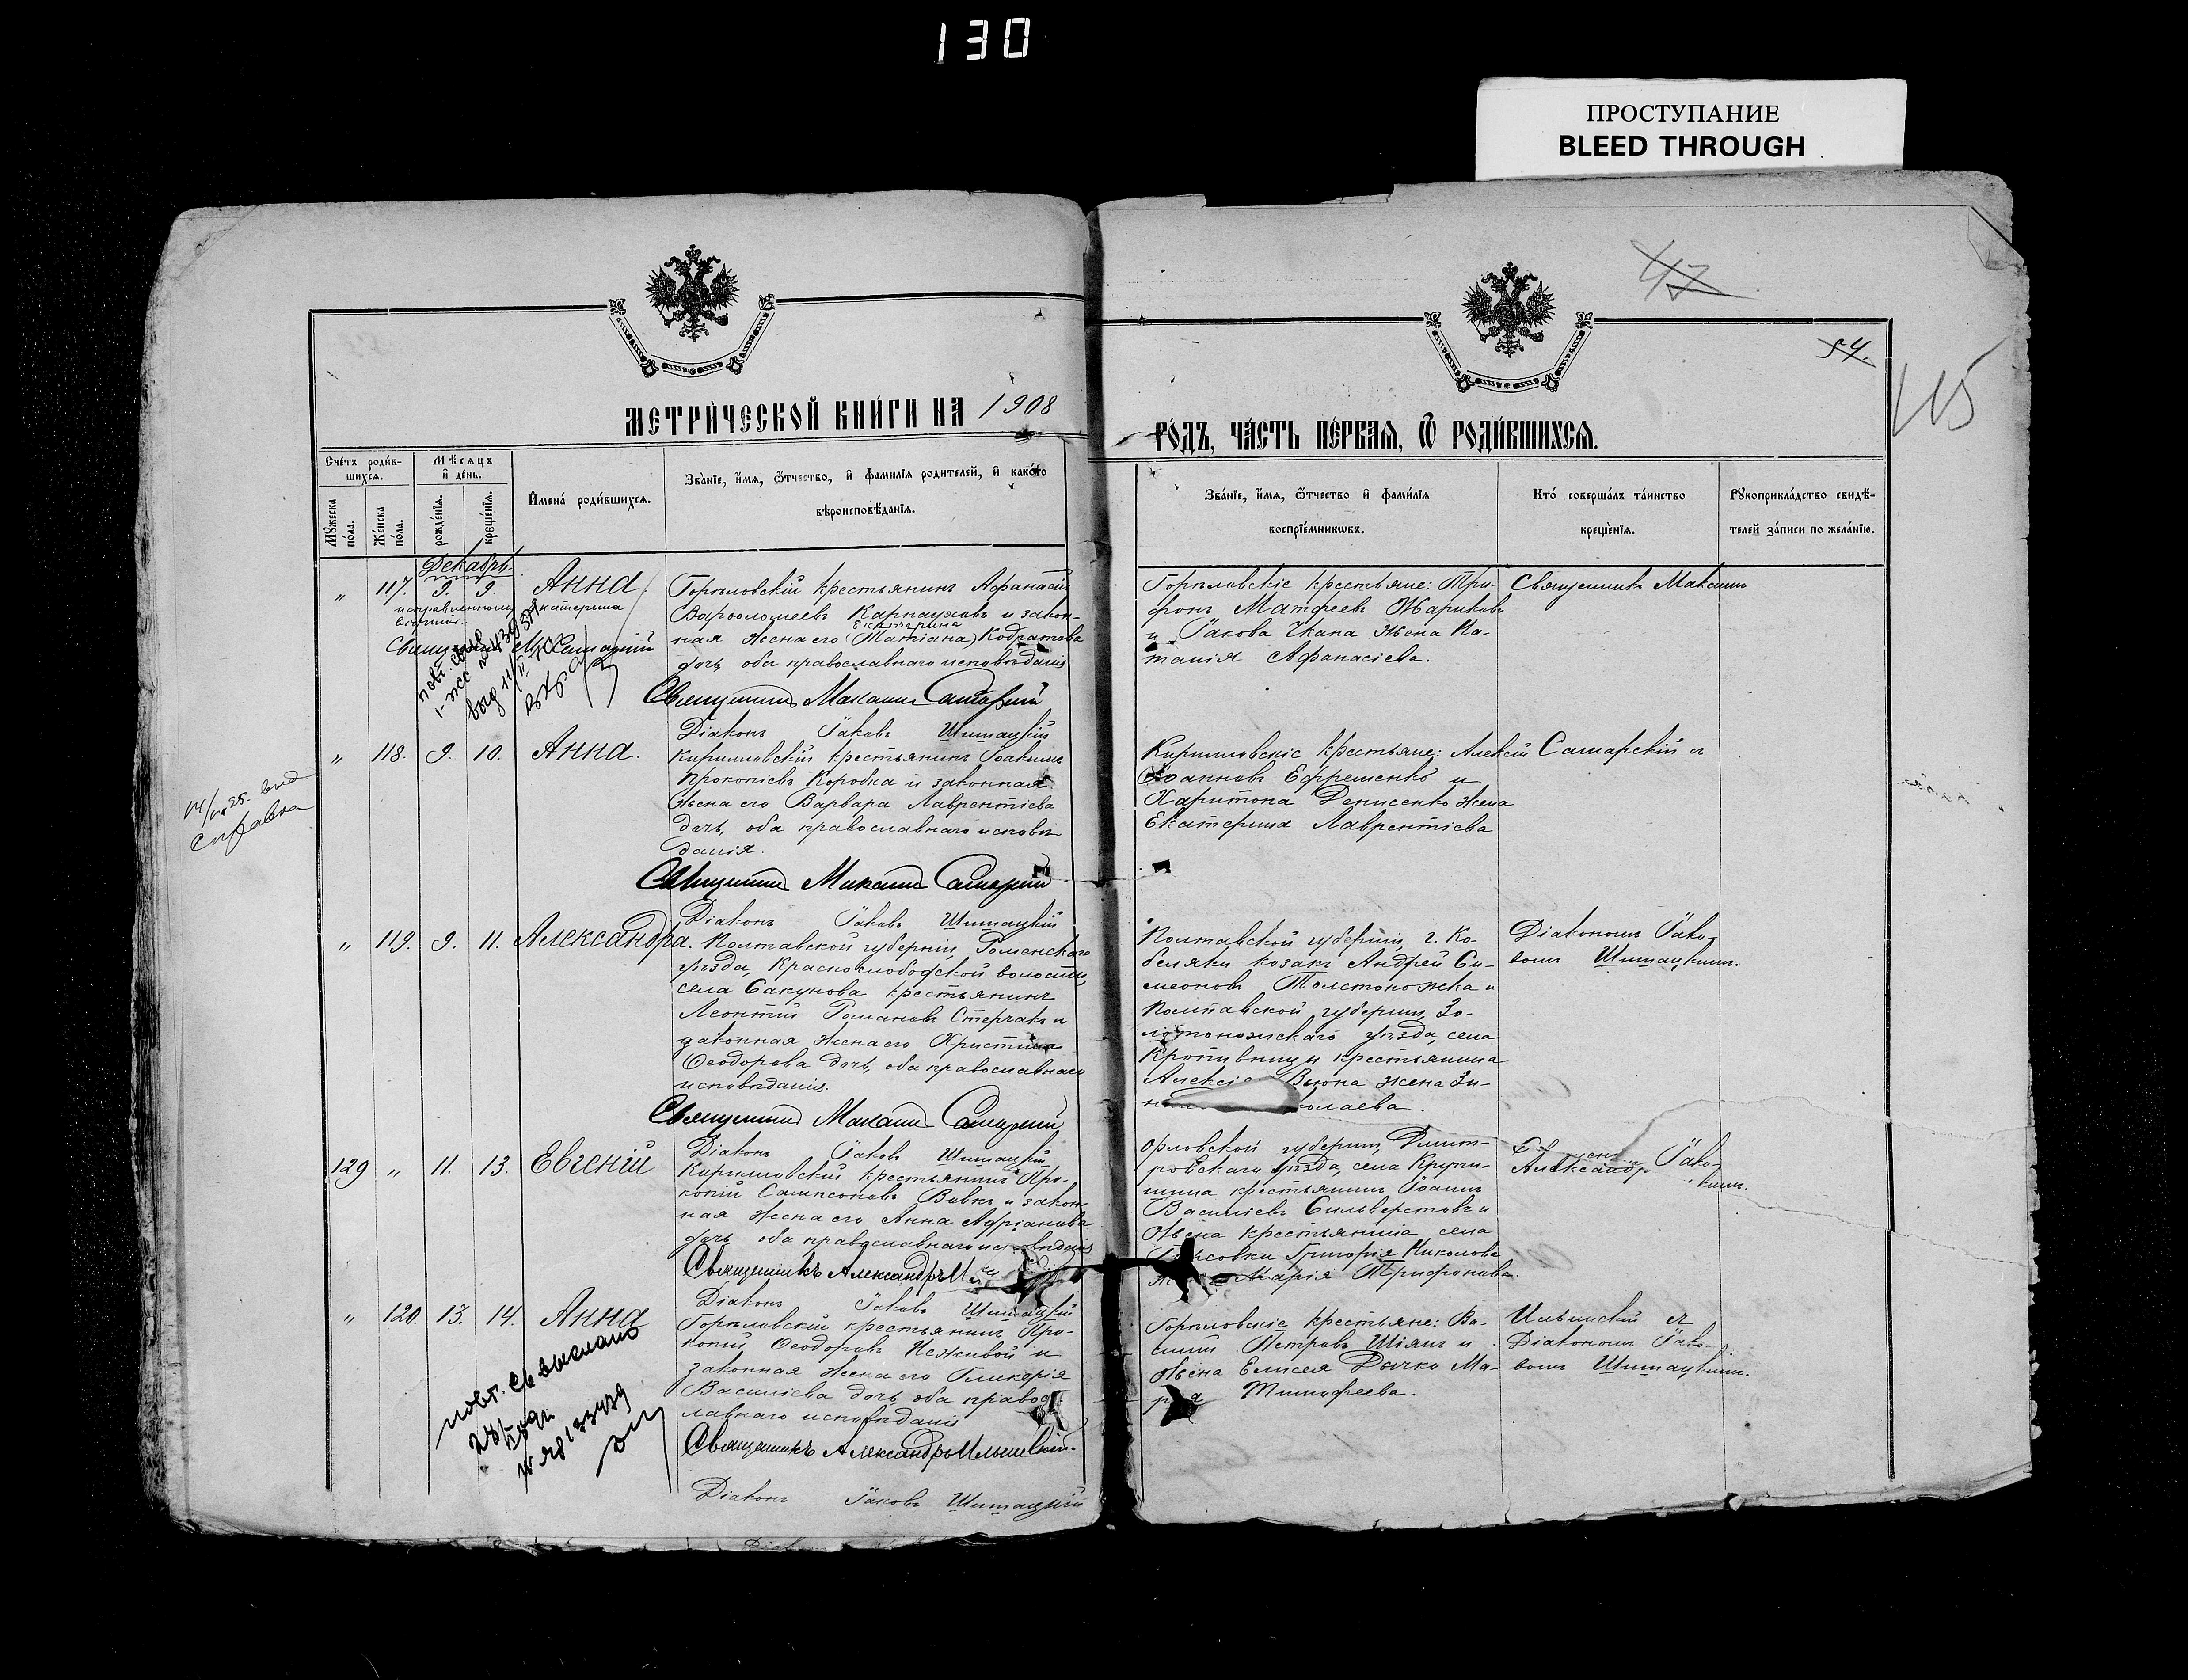 130
ПРОСТУПАНИЕ
BLEED THROUGH
47
54.
115
МЕТРИ́ЧЕСКОЙ КНИ́ГИ НА 1908
ГО́ДЪ, ЧА́СТЬ ПЕ́РВАЯ, Ѿ РОДИ́ВШИХСЯ.
Сче́тъ роди́в-
шихся.
Мѣсяцъ
и҆ де́нь.
Мꙋжеска по́ла.
Же́нска по́ла.
рожде́нїѧ.
креще́нїѧ.
И҆мена̀ роди́вшихся.
Зва́нїе, и҆́мѧ, ѻ҆́тчество, и҆ фами́лїѧ родителей, и҆ како́гѡ
вѣроисповѣ́данїѧ.
Зва́нїе, и҆́мѧ, ѻ҆́тчество и҆ фами́лїѧ
воспрїе́мникѡвъ.
Кто̀ соверша́лъ та́инство
креще́нїѧ.
Рꙋкоприкла́дство свидѣ́-
телей за́писи по жела́нїю.
Декабрь
„ 117. 9. 9. Анна
Екатерина
Горѣловскій крестьянинъ Афанасій
Варѳоломеевъ Карнауховъ и закон-
Екатерина
ная жена его (Татіана) Кодратова
дочь, оба православнаго исповѣданія
Священникъ Максимъ Самарскій
Діаконъ Іаковъ Шишацкій
Горѣловскіе крестьяне: Три-
фонъ Матфеевъ Жариковъ
и Іакова Чкана жена На-
талія Афанасіева.
Священникъ Максимъ
14/ 25. выд
справка
„ 118. 9. 10. Анна.
Кирилловскій крестьянинъ Іоакимъ
Прокопіевъ Коробка и законная
жена его Варвара Лаврентіева
дочь, оба православнаго исповѣ-
данія.
Священникъ Максимъ Самарскій
Діаконъ Іаковъ Шишацкій
Кирилловскіе крестьяне: Алексій
Іоанновъ Ефременко и
Харитона Денисенко жена
Екатерина Лаврентіева
Самарскій съ
„ 119. 9. 11. Александра.
Полтавской губерніи, Роменскаго
уѣзда, Краснослободской волости,
села Сакунова крестьянинъ
Леонтій Романовъ Стерчакъ и
законная жена его Христина
Ѳеодорова дочь, оба православнаго
исповѣданія.
Священникъ Максимъ Самарскій
Діаконъ Іаковъ Шишацкій
Полтавской губерніи, г. Ко-
беляки козакъ Андрей Си-
меоновъ Толстоножка и
Полтавской губерніи, Зо-
лотоношскаго уѣзда, села
Кропивницы крестьянина
Алексія Вьюна жена Зи-
колаева.
Діакономъ Іако-
вомъ Шишацкимъ.
129 „ 11. 13. Евгеній
Кирилловскій крестьянинъ Про-
копій Сампсоновъ Вовкъ и закон-
ная жена его Анна Адріанова
дочь оба православнаго исповѣданія
Священникъ Александръ
Діаконъ Іаковъ Шишацкій
Орловской губерніи, Дмит-
ровскаго уѣзда, села Крупы-
шина крестьянинъ Іоаннъ
Василіевъ Сильверстовъ и
жена крестьянина села
Григорія Николова
Марія Трифонова.
Александръ Іако-
кимъ.
„ 120. 13. 14. Анна
Горѣловскій крестьянинъ Про-
копій Ѳеодоровъ Неживой и
законная жена его Гликерія
Василіева дочь, оба правос-
лавнаго исповѣданія
Священникъ Александръ Ильинскій.
Діаконъ Іаковъ Шишацкій
повт. св выслано
Горѣловскіе крестьяне: Ва-
силій Петровъ Шіянъ и
жена Елисея Дычко Ма-
рія Тимофеева.
Ильинскій съ
Діакономъ Іако-
вомъ Шишацкимъ.